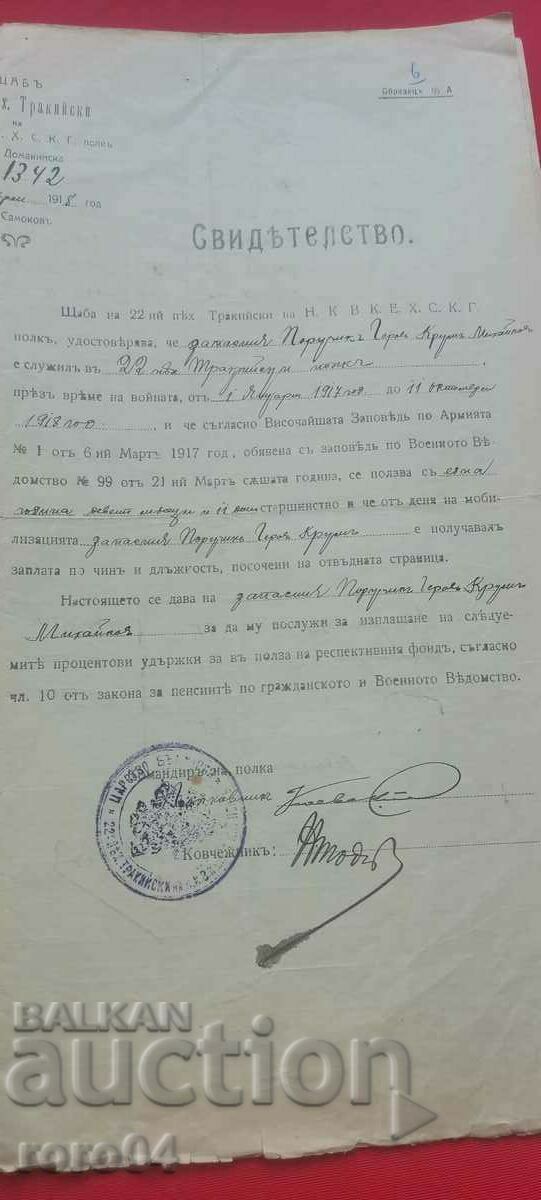 ЩАБЪ
х. Тракийски
на
Х. С. К. Г. полкъ
Домакинска
1342
1918 год
Самоковъ
6
Образецъ № А
Свидѣтелство.
Щаба на 22-ий пѣх Тракийски на Н. К В К. Е. Х. С. К. Г
полк, удостовѣрява, че запасния Поручикъ Геровъ Крумъ Михайловъ
е служилъ въ 22 пѣх Тракийски полкъ,
прѣзъ врѣме на войната, отъ 1 Януари 1917 год до 11 октомври
1918 год, и че съгласно Височайшата Заповѣдь по Армията
№ 1 отъ 6-ий Мартъ 1917 год, обявена съ заповѣдь по Военното Вѣ-
домство № 99 отъ 21-ий Мартъ сѫщата година, се ползва съ една
година месеци и 11 дни старшинство и че отъ деня на моби-
лизацията запасния Поручикъ Геровъ Крумъ е получавалъ
заплата по чинъ и длъжность, посочени на отвѫдната страница.
Настоящето се дава на запасния Поручикъ Геровъ Крумъ
Михайловъ за да му послужи за изплащане на слѣдуе-
митѣ процентови удържки за въ полза на респективния фондъ, съгласно
чл. 10 отъ закона за пенсиитѣ по гражданското и Военното Вѣдомство.
Командиръ на полка
Полковникъ
Ковчежникъ:
ЦАРСТВО
22 ПѢХ. ТРАКИЙСКИ НА
BALKAN
auction
roro04